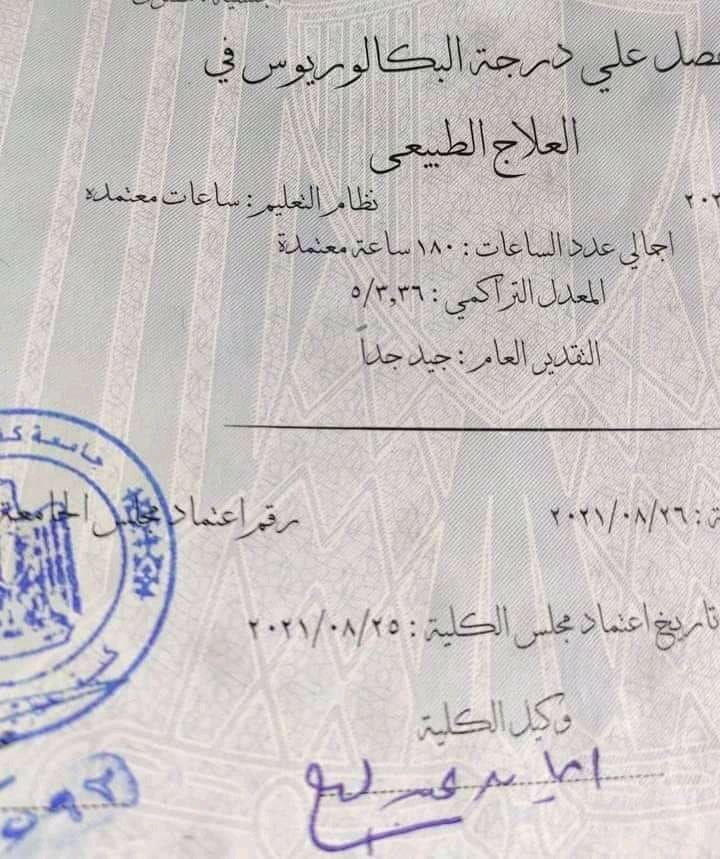 حصل علي درجة البكالوريوس في
العلاج الطبيعى
نظام التعليم : ساعات معتمده
اجمالي عدد الساعات : ١٨٠ ساعة معتمدة
المعدل التراكمي : ٥/٣,٣٦
التقدير العام : جيد جداً
جامعة
٢٠٢١/٠٨/٢٦
رقم اعتماد مجلس الجامعة
تاريخ اعتماد مجلس الكلية : ٢٠٢١/٠٨/٢٥
وكيل الكلية